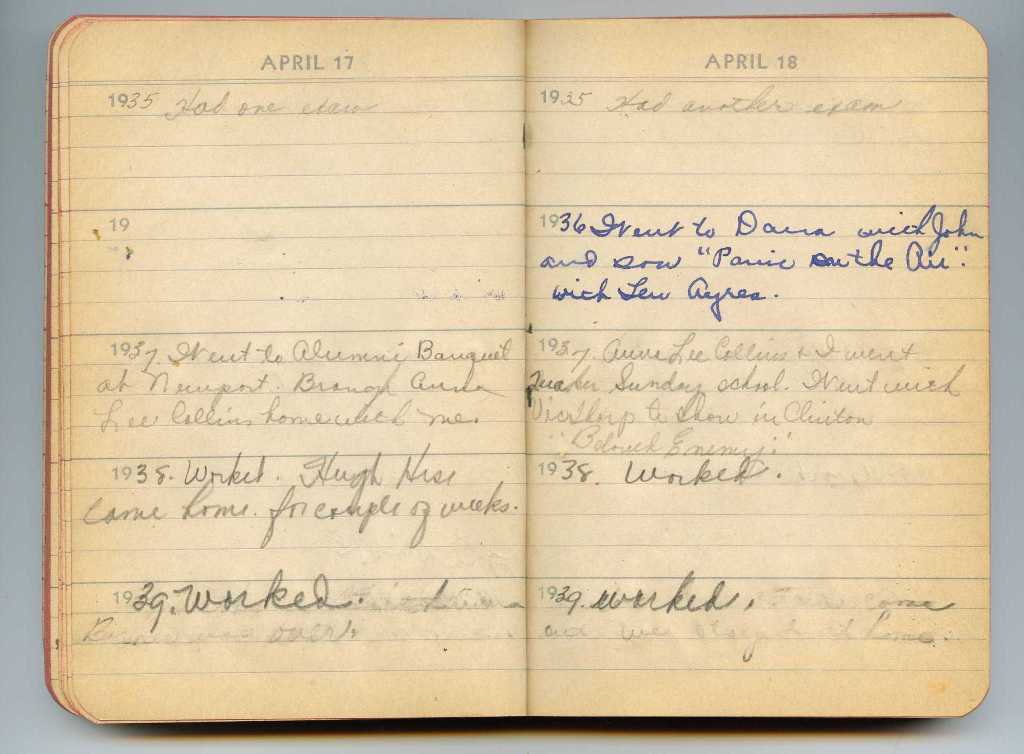 APRIL 17
1935 Had one exam
19
1937. Went to Alumni Banquet
at Newport. Brought Anna
Lee Collins home with me.
1938. Worked. Hugh
came home for couple of weeks.
1939. Worked.
over.
APRIL 18
1935 Had another exam
1936 Went to Dana with John
and saw "Panic on the Air".
with Lew Ayres.
1937. Anna Lee Collins & I went
Sunday school. Went with
to show in Clinton
"Beloved Enemy."
1938. Worked.
1939. Worked. came
and we stayed at home.